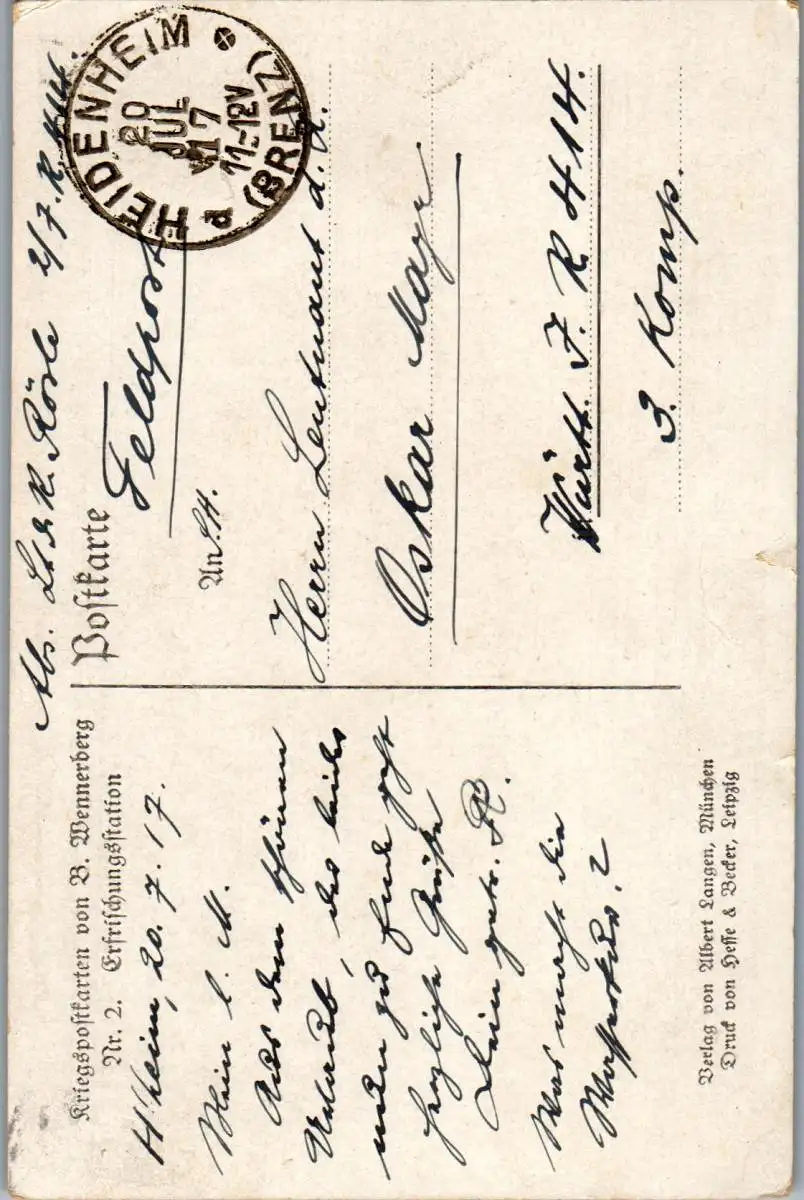 Kriegspostkarten von B. Wennerberg
Nr. 2. Erfrischungsstation
H'heim, 20. 7. 17.
Mein l. M.
Aus dem schönen
Urlaub, der leider
nun zu Ende geht
herzliche Grüße
Dein getr. R.
Was macht die
?
Verlag von Albert Langen, München
Druck von Hesse & Becker, Leipzig
Abs. Lt. d R. Rösle 2/J. R. 414.
Postkarte
Feldpost
HEIDENHEIM
(BRENZ)
20
JUL
17
11-12V
d
An
Herrn Leutnant d. R.
Oskar Mayr.
Württ. J. R 414.
3. Komp.